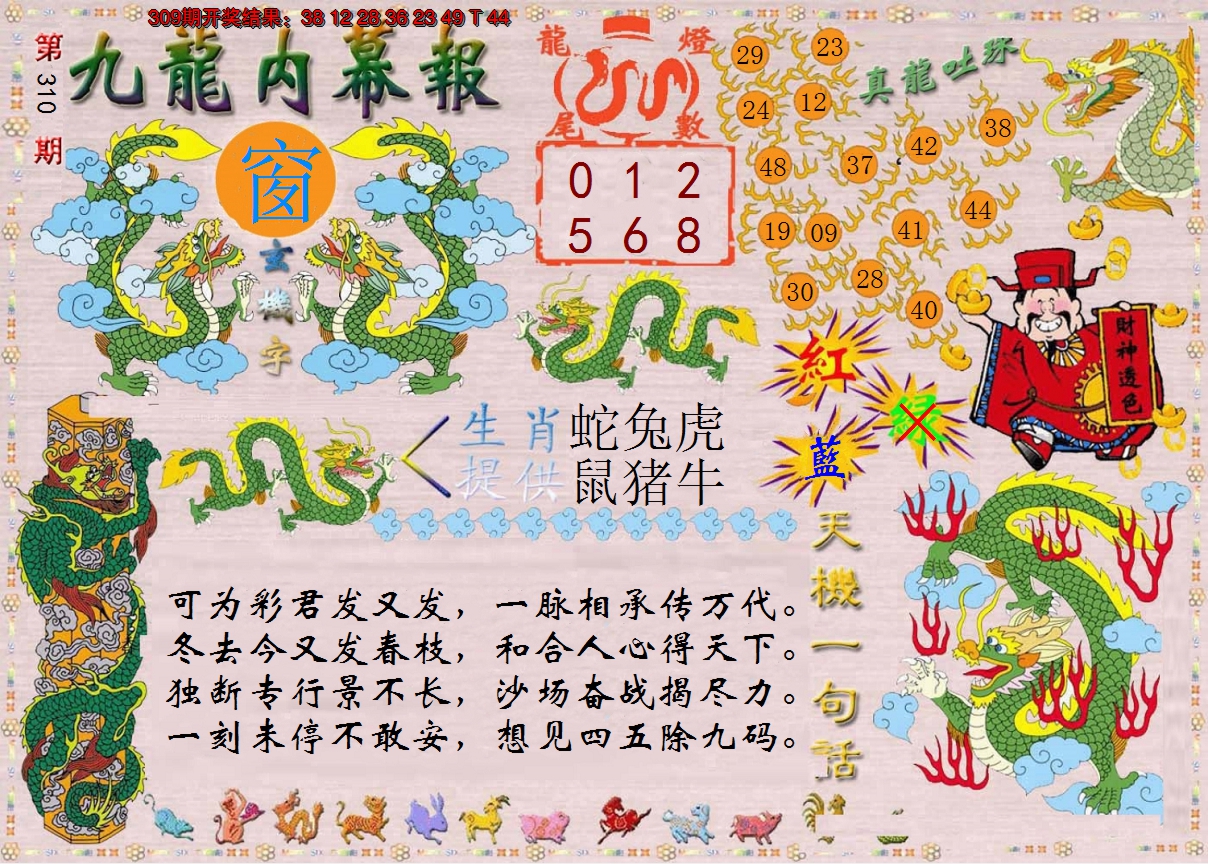 309期开奖结果：38 12 28 36 23 49 T 44
第310期
九龍内幕報
窗
玄機字
龍燈尾數
0 1 2
5 6 8
真龍吐珠
29
23
24
12
48
37
42
38
19
09
41
44
30
28
40
紅
绿
藍
財神透色
生肖提供
蛇兔虎
鼠猪牛
天機一句話
可为彩君发又发，一脉相承传万代。
冬去今又发春枝，和合人心得天下。
独断专行景不长，沙场奋战揭尽力。
一刻未停不敢安，想见四五除九码。